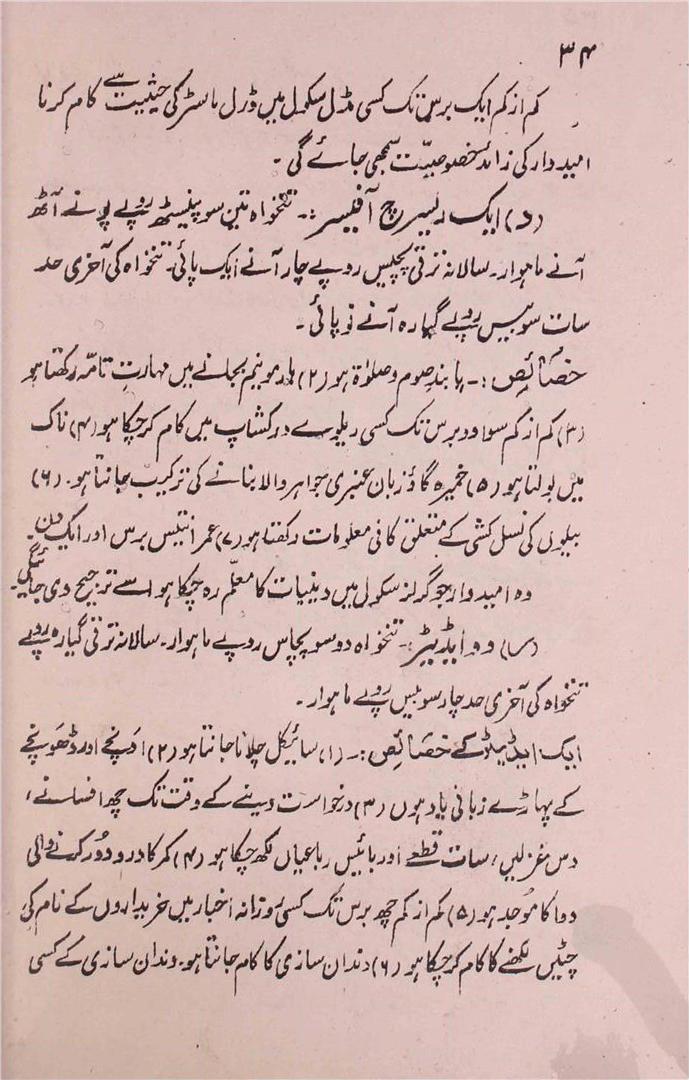 ۳۴
کم از کم ایک برس تک کسی مڈل سکول میں ڈرل ماسٹر کی حیثیت سے کام کرنا
امیدوار کی زائد خصوصیت سمجھی جائے گی۔
(د) ایک ریسرچ آفیسر:۔ تنخواہ تین سو پینسٹھ روپے پونے آٹھ
آنے ماہوار۔ سالانہ ترقی پچیس روپے چار آنے ایک پائی۔ تنخواہ کی آخری حد
سات سو بیس روپے گیارہ آنے نو پائی۔
خصائص:۔ پابند صوم و صلوٰۃ ہو (۲) ہارمونیم بجانے میں مہارتِ تامّہ رکھتا ہو
(۳) کم از کم سوا دو برس تک کسی ریلوے ورکشاپ میں کام کر چکا ہو (۴) ناک
میں بولتا ہو (۵) خمیرہ گاؤ زبان عنبری جواہر والا بنانے کی ترکیب جانتا ہو۔ (۶)
بیلوں کی نسل کشی کے متعلق کافی معلومات رکھتا ہو (۷) عمر انتیس برس اور ایک دن۔
وہ امیدوار جو گرلز سکول میں دینیات کا معلّم رہ چکا ہو اسے ترجیح دی جائیگی۔
(س) دو ایڈیٹر:۔ تنخواہ دو سو پچاس روپے ماہوار۔ سالانہ ترقی گیارہ روپے
تنخواہ کی آخری حد چار سو بیس روپے ماہوار۔
ایک ایڈیٹر کے خصائص:۔ (۱) سائیکل چلانا جانتا ہو (۲) اونچے اور ڈھونچے
کے پہاڑے زبانی یاد ہوں (۳) درخواست دینے کے وقت تک چھ افسانے،
دس غزلیں، سات قطعے اور بائیس رباعیاں لکھ چکا ہو (۴) کمر کا درد دُور کرنے والی
دوا کا مُوجد ہو (۵) کم از کم چھ برس تک کسی روزانہ اخبار میں خریداروں کے نام کی
چٹیں لکھنے کا کام کر چکا ہو (۶) دندان سازی کا کام جانتا ہو۔ دندان سازی کے کسی